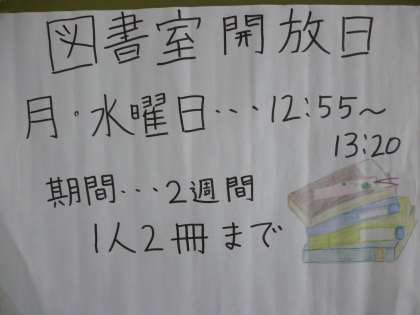 図書室開放日
月・水曜日…12:55〜
13:20
期間…2週間
1人2冊まで